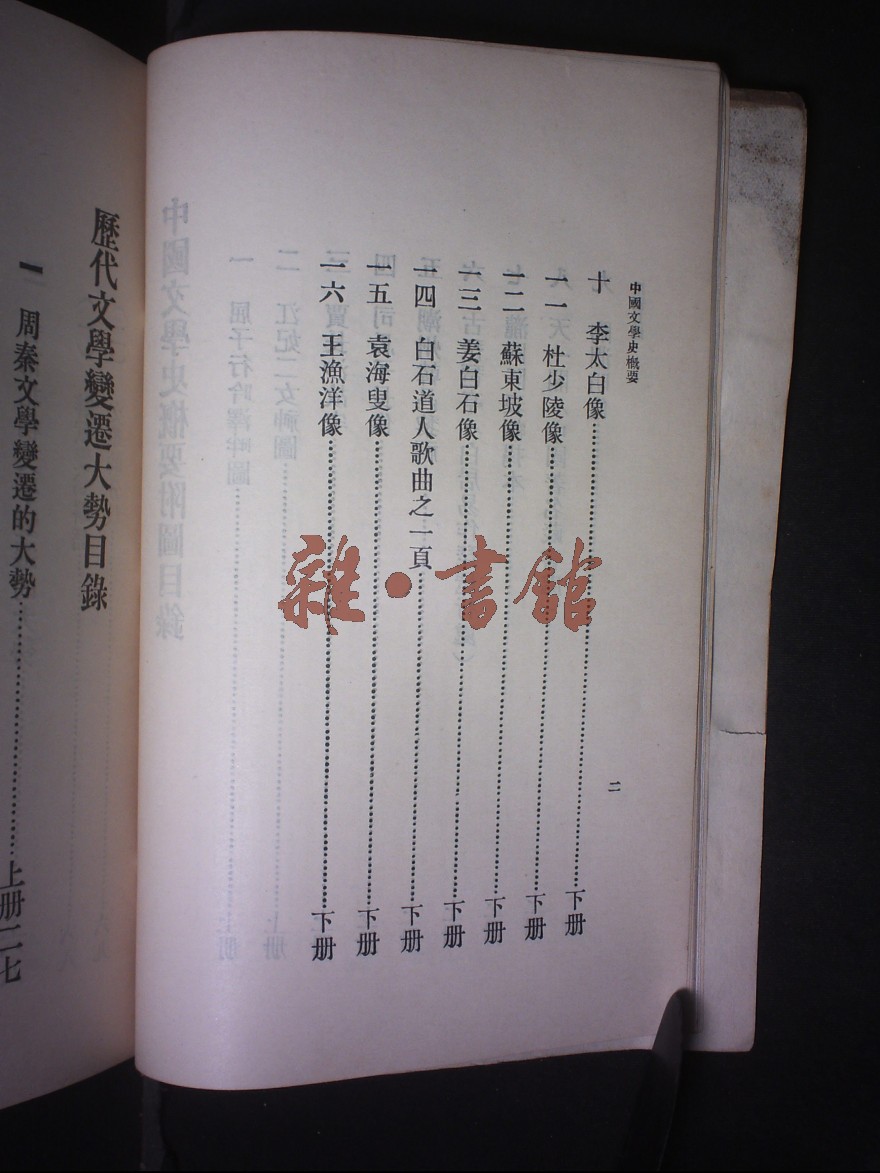 中國文學史概要
二
十 李太白像……下册
一一 杜少陵像……下册
一二 蘇東坡像……下册
一三 姜白石像……下册
一四 白石道人歌曲之一頁……下册
一五 袁海叟像……下册
一六 王漁洋像……下册
歷代文學變遷大勢目錄
一 周秦文學變遷的大勢……上册二七
雜·書館